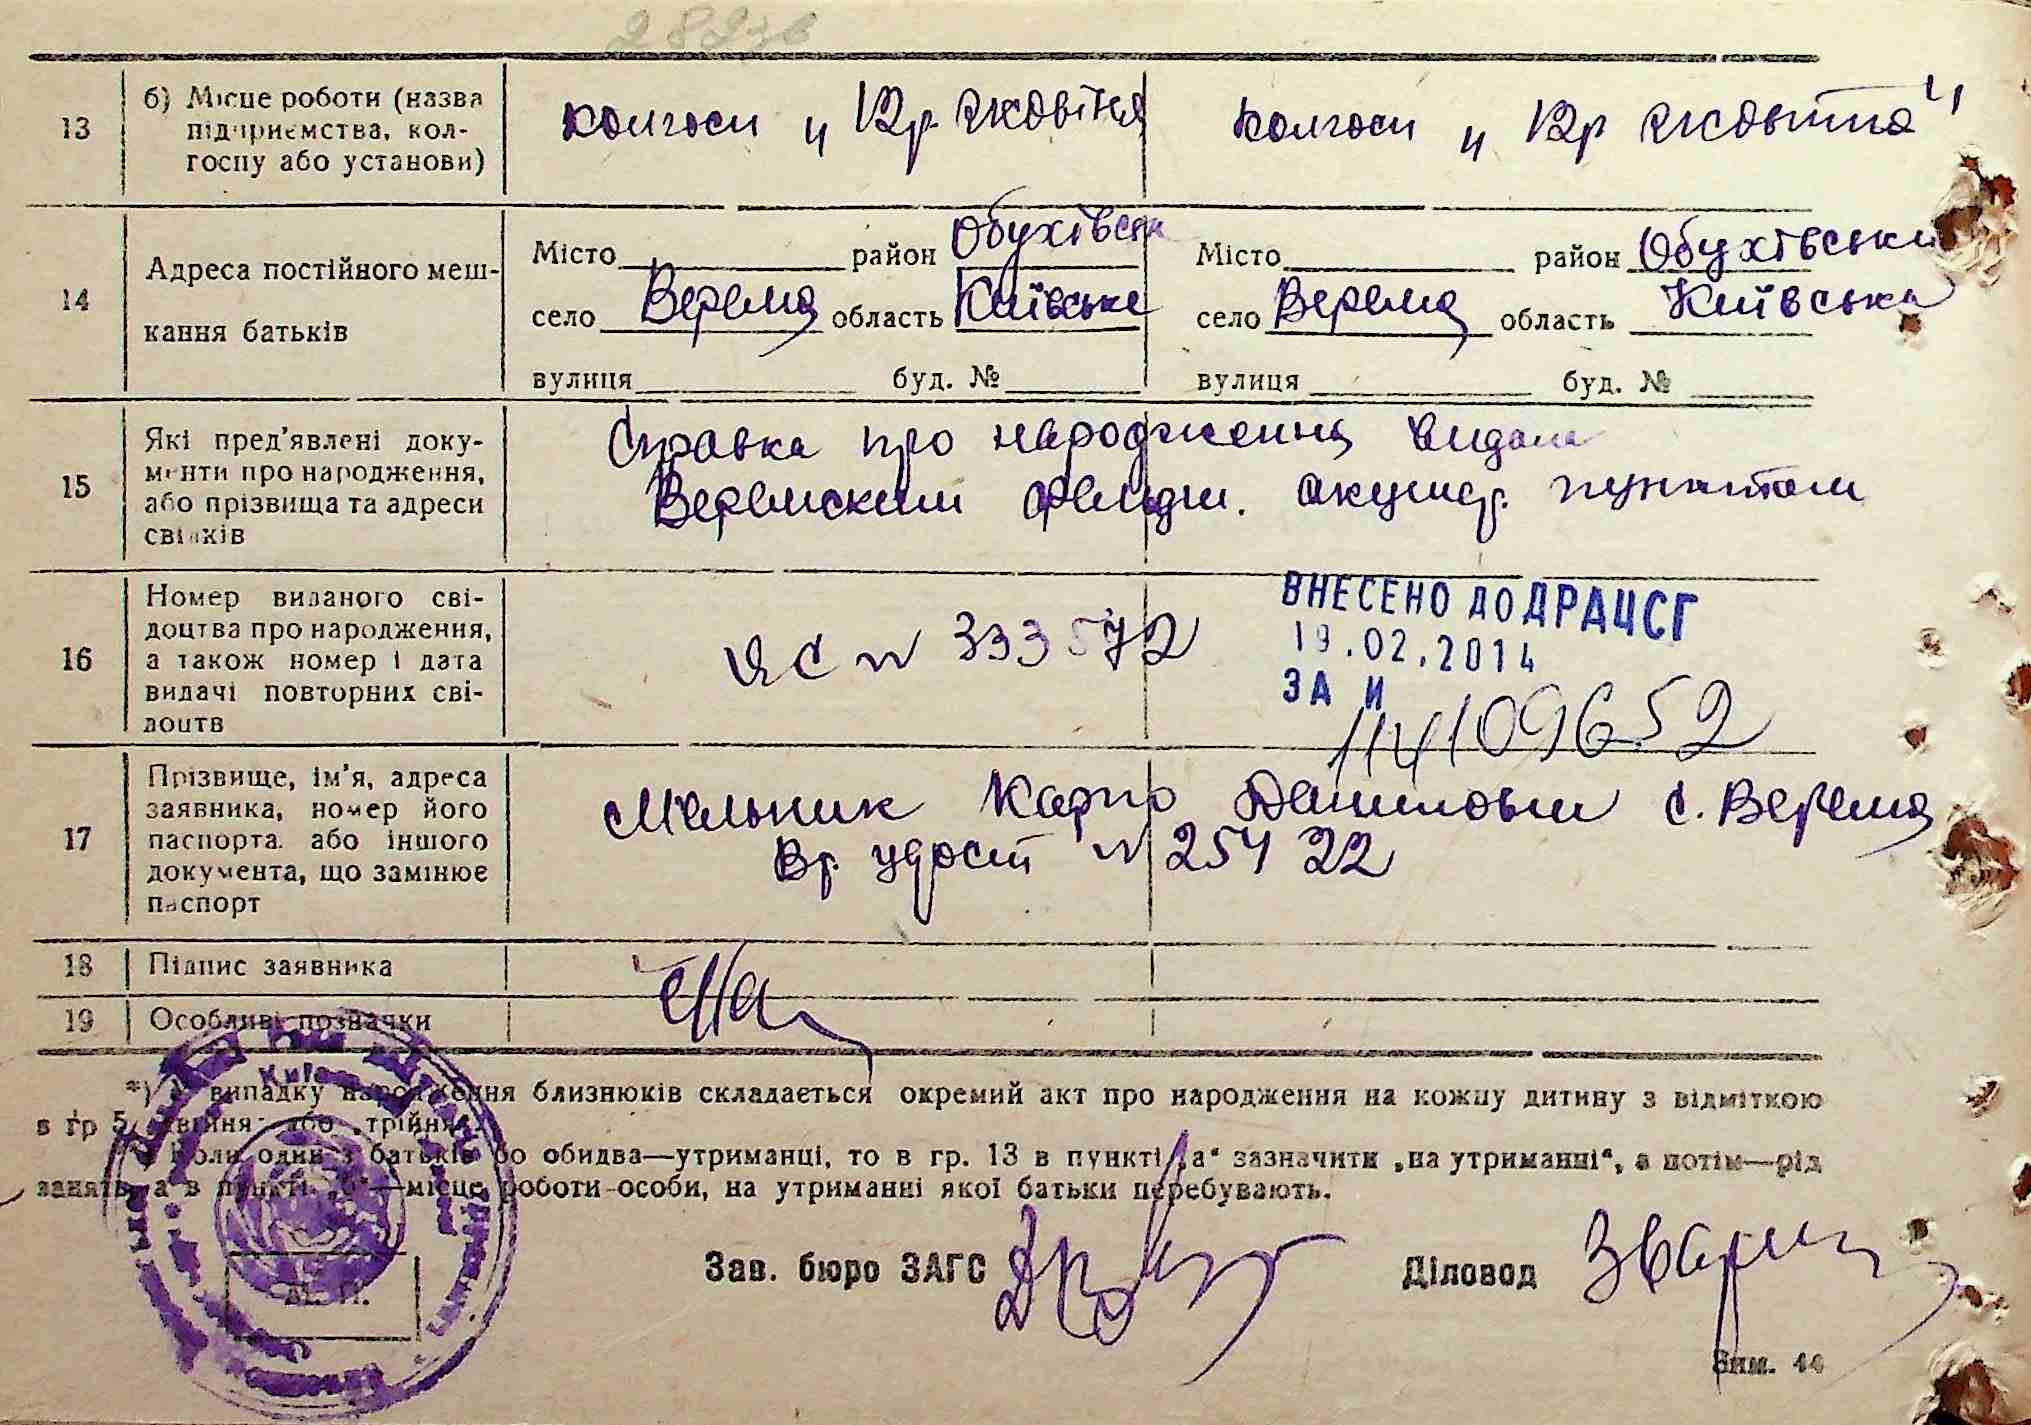 13 б) Місце роботи (назва підприємства, колгоспу або установи)
колгосп „ Кр. жовтня
колгосп „ Кр жовтня"
14 Адреса постійного мешкання батьків
Місто район Обухівськ
село Верем'я область Київське
вулиця буд. №
Місто район Обухівськи
село Верем'я область Київська
вулиця буд. №
15 Які пред'явлені документи про народження, або прізвища та адреси свідків
Справка про народження видана
Веремским фельдш. акушер. пунктом
16 Номер виданого свідоцтва про народження, а також номер і дата видачі повторних свідоцтв
ЯС № 333572
ВНЕСЕНО ДО ДРАЦСГ
19.02.2014
ЗА И
17 Прізвище, ім'я, адреса заявника, номер його паспорта або іншого документа, що замінює паспорт
Мельник Карпо Данилович с. Верем'я
Вр. удост № 254 22
18 Підпис заявника
19 Особливі позначки
*) У випадку народження близнюків складається окремий акт про народження на кожну дитину з відміткою
в гр 5 „двійня" або „трійня".
Коли один з батьків або обидва—утриманці, то в гр. 13 в пункті „а" зазначити „на утриманні", а потім—рід
занять, а в пункті „б"—місце роботи особи, на утриманні якої батьки перебувають.
Зав. бюро ЗАГС
Діловод
М. П.
Зим. 44